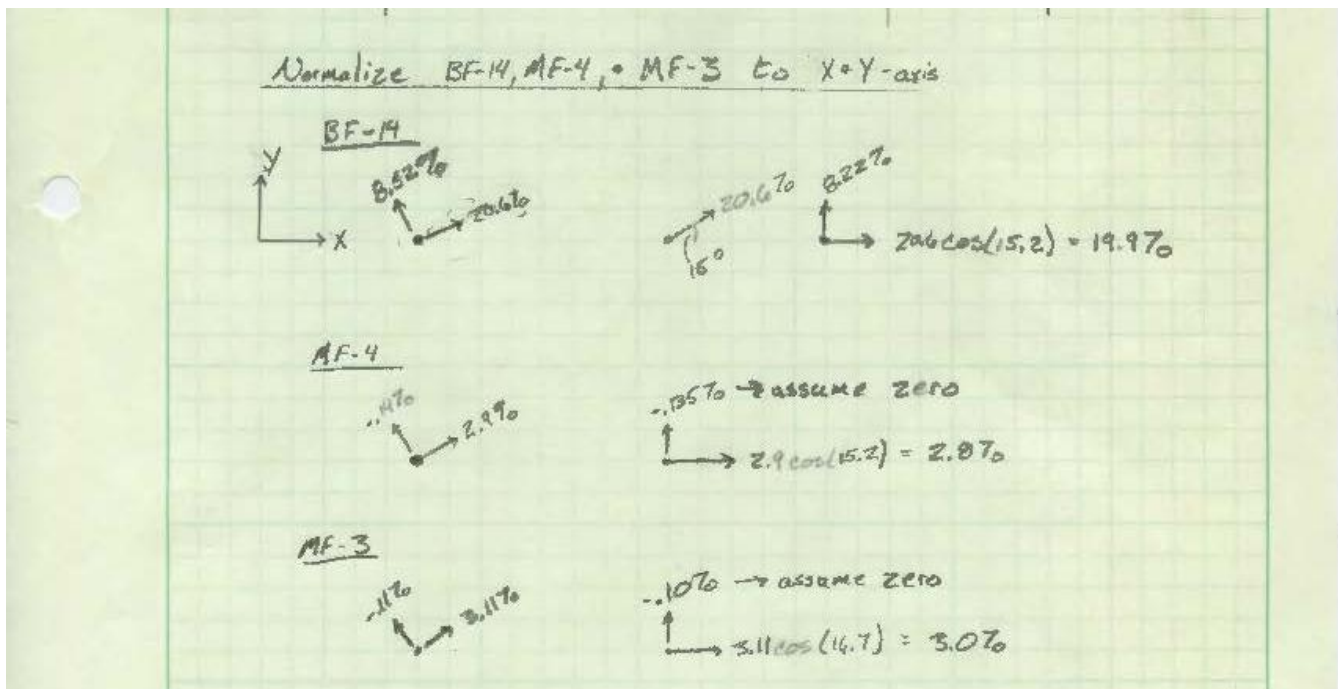 Normalize BF-14, MF-4, + MF-3 to X+Y-axis
BF-14
Y
X
8.52%
20.6%
20.6%
15°
8.22%
20.6 cos(15.2) = 19.9%
MF-4
-.14%
2.9%
-.135% → assume zero
2.9 cos(15.2) = 2.8%
MF-3
-.11%
3.11%
-.10% → assume zero
3.11 cos (16.7) = 3.0%